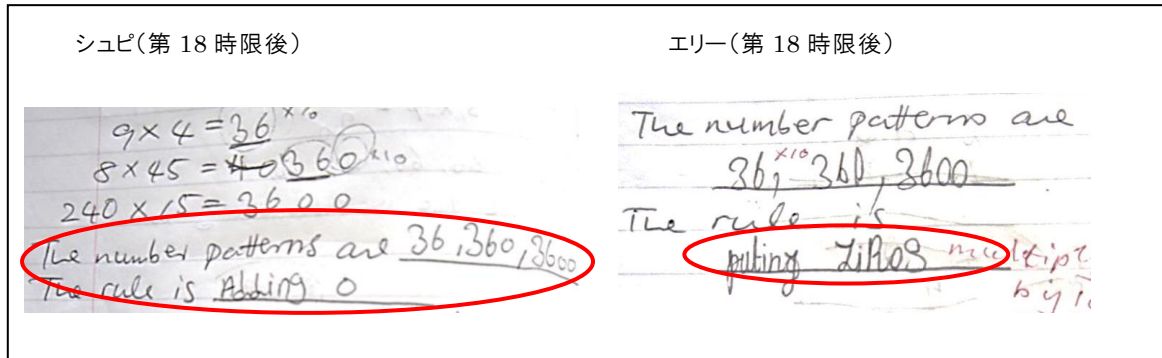 シュピ(第 18 時限後)
9 × 4 = 36 ×10
8 × 45 = 40 360 ×10
240 × 15 = 3600
The number patterns are 36, 360, 3600
The rule is Adding 0
エリー(第 18 時限後)
The number patterns are
36, ×10 360, 3600
The rule is
puting ZiROS multipl
by 10